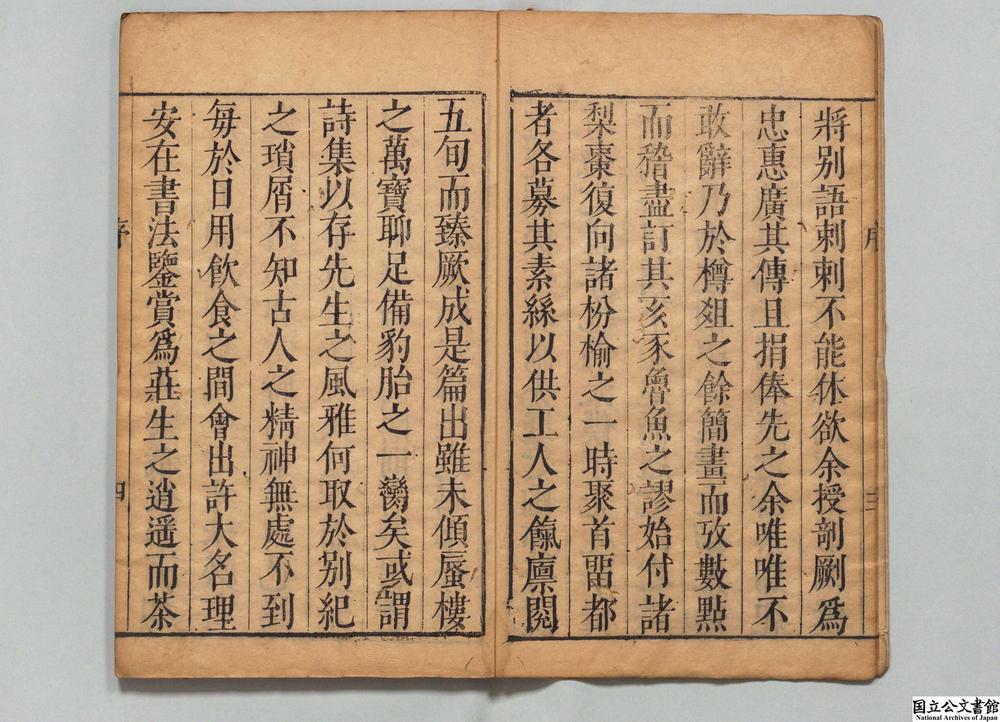 將别語刺刺不能休欲余授剞劂爲
忠惠廣其傳且捐俸先之余唯唯不
敢辭乃於樽爼之餘簡畫而攷數點
而稽盡訂其亥豕魯魚之謬始付諸
梨棗復向諸枌榆之一時聚首畱都
者各募其素絲以供工人之餼廩閱
五旬而臻厥成是篇出雖未傾蜃樓
之萬寶聊足備豹胎之一臠矣或謂
詩集以存先生之風雅何取於别紀
之瑣屑不知古人之精神無處不到
每於日用飲食之間會出許大名理
安在書法鑒賞爲莊生之逍遥而茶
序
三
序
四
国立公文書館
National Archives of Japan